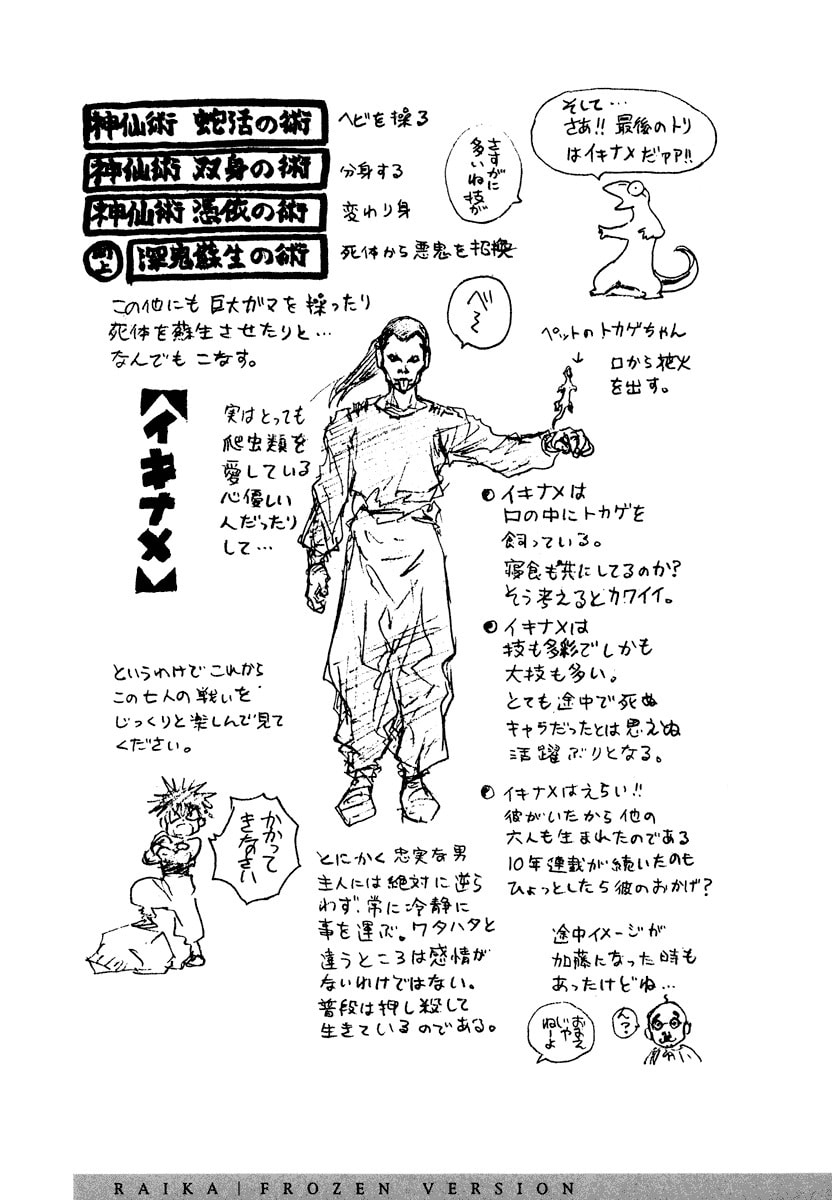 そして…
さあ!! 最後のトリ
はイキナメだァァ!!
神仙術 蛇活の術
ヘビを操る
神仙術 双身の術
分身する
神仙術 憑依の術
変わり身
同上
深鬼蘇生の術
死体から悪鬼を招換
さすがに
多いね技が
この他にも 巨大ガマを 操ったり
死体を蘇生させたりと…
なんでも こなす。
べ〜
ペットのトカゲちゃん
↓
口から花火
を出す。
【イキナメ】
実はとっても
爬虫類を
愛している
心優しい
人だったり
して…
イキナメは
口の中にトカゲを
飼っている。
寝食も共にしてるのか?
そう考えるとカワイイ。
イキナメは
技も多彩でしかも
大技も多い。
とても途中で死ぬ
キャラだったとは思えぬ
活躍ぶりとなる。
というわけで これから
この七人の戦いを
じっくりと楽しんで見て
ください。
かかって
きなさい
イキナメはえらい!!
彼がいたから他の
六人も生まれたのである
10年連載が続いたのも
ひょっとしたら彼のおかげ?
とにかく忠実な男
主人には絶対に逆ら
わず、常に冷静に
事を運ぶ。ワタハタと
違うところは感情が
ないわけではない。
普段は押し殺して
生きているのである。
途中イメージが
加藤になった時も
あったけどね…
ん?
おまえ
じゃ
ねーよ
RAIKA | FROZEN VERSION